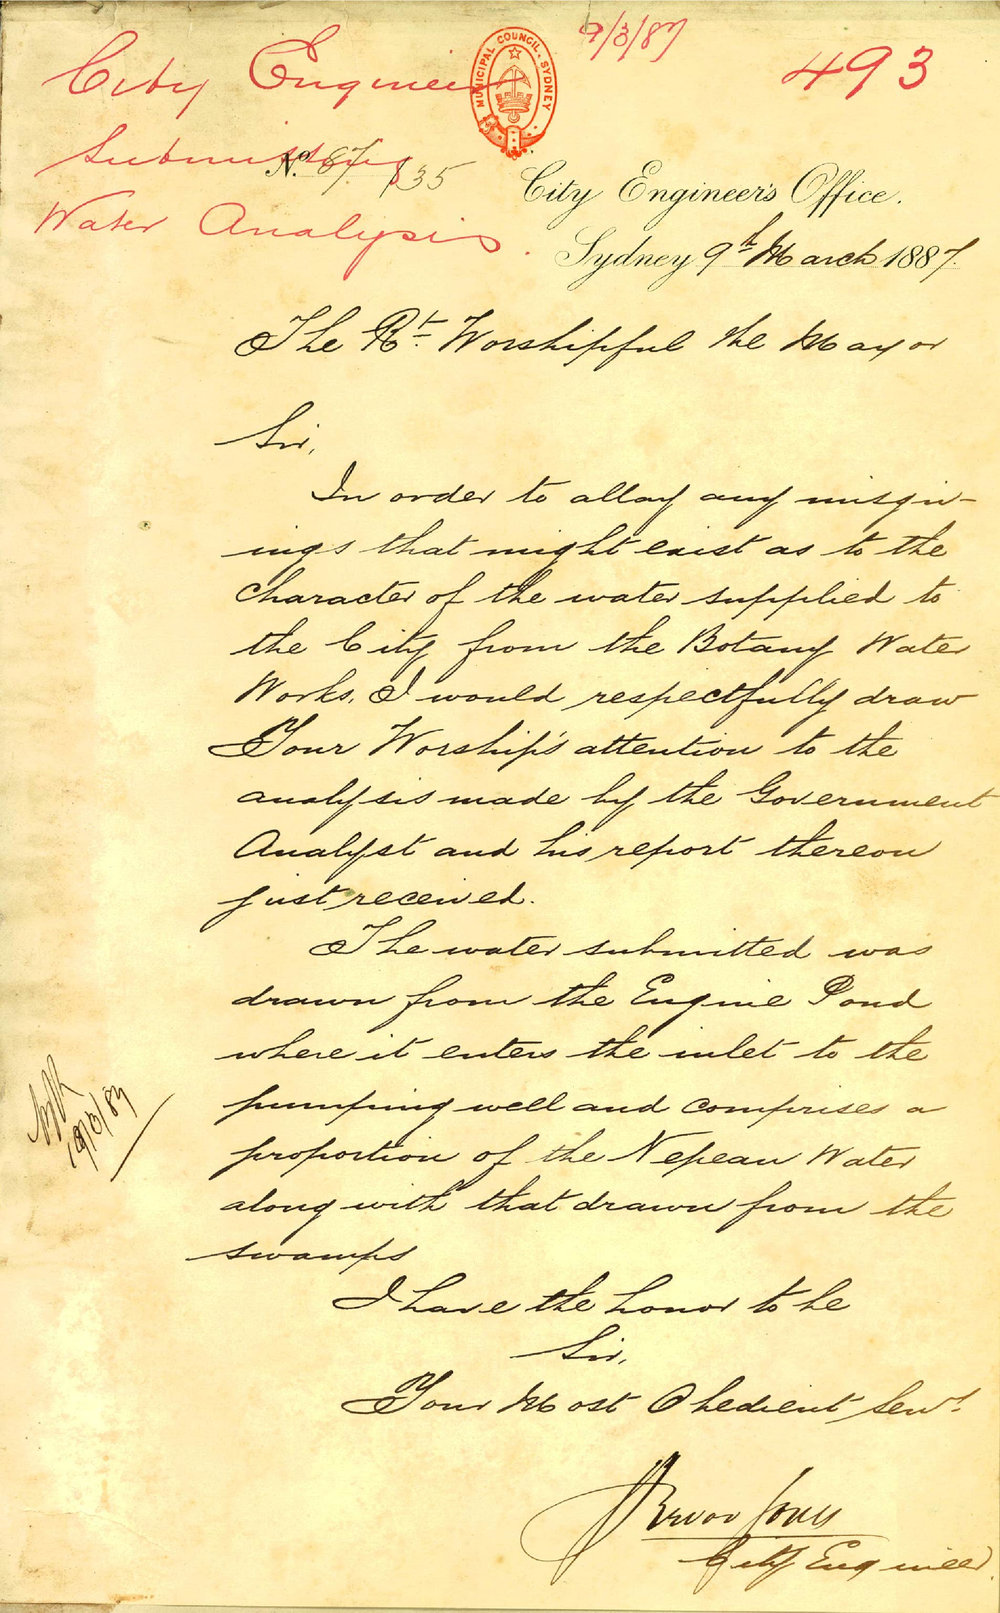 9/3/87
493
City Engineer
Submitting
Water Analysis.
MUNICIPAL COUNCIL. SYDNEY
No. 87/135
City Engineer's Office.
Sydney 9th March 1887.
The Rt. Worshipful the Mayor
Sir,
In order to allay any misgiv-
ings that might exist as to the
character of the water supplied to
the City from the Botany Water
Works, I would respectfully draw
Your Worship's attention to the
analysis made by the Government
Analyst and his report thereon
just received.
The water submitted was
drawn from the Engine Pond
where it enters the inlet to the
pumping well and comprises a
proportion of the Nepean Water
along with that drawn from the
swamps
I have the honor to be
Sir,
Your Most Obedient Servt.
Trevor Jones
City Engineer.